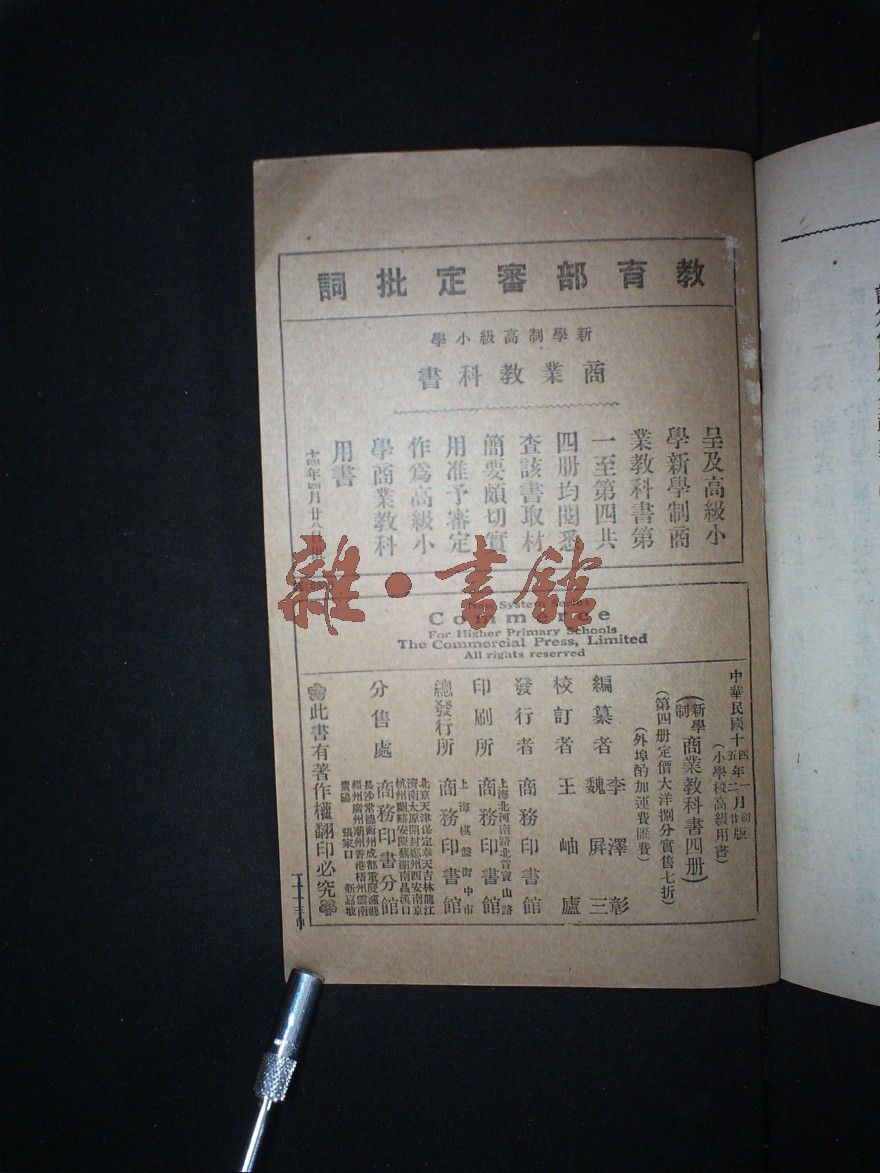 教育部審定批詞
新學制高級小學
商業教科書
呈及高級小
學新學制商
業教科書第
一至第四共
四册均閱悉
查該書取材
簡要頗切實
用准予審定
作爲高級小
學商業教科
用書
雜·書館
New System Series
Commerce
For Higher Primary Schools
The Commercial Press, Limited
All rights reserved
中華民國十四年一月初版
五年二月廿版
(小學校高級用書)
(新學制)商業教科書四册)
(第四册定價大洋捌分實售七折)
(外埠酌加運費匯費)
編纂者 李澤彰
魏屏三
校訂者 王岫廬
發行者 商務印書館
印刷所 上海北河南路北首寶山路
商務印書館
總發行所 上海棋盤街中市
商務印書館
分售處 商務印書分館
北京天津保定奉天吉林龍江
濟南太原開封鄭州西安南京
杭州蘭谿安慶蕪湖南昌漢口
長沙常德衡州成都重慶瀘縣
福州廣州潮州香港梧州雲南
貴陽 張家口 新嘉坡
此書有著作權翻印必究